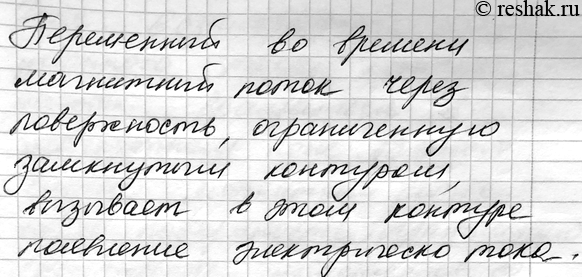 © reshak.ru
Переменный во времени
магнитный поток через
поверхность, ограниченную
замкнутым контуром,
вызывает в этом контуре
появление электрическо тока.